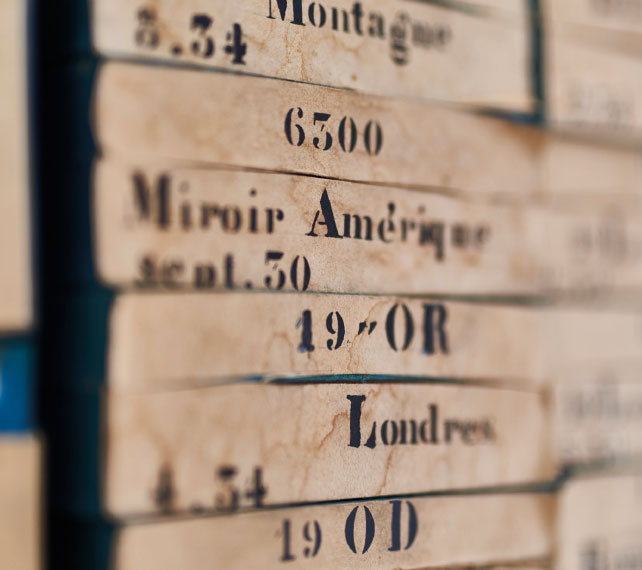 Montagne
3.34
6300
Miroir Amérique
sept.30
19 " OR
Londres
4.34
19 OD